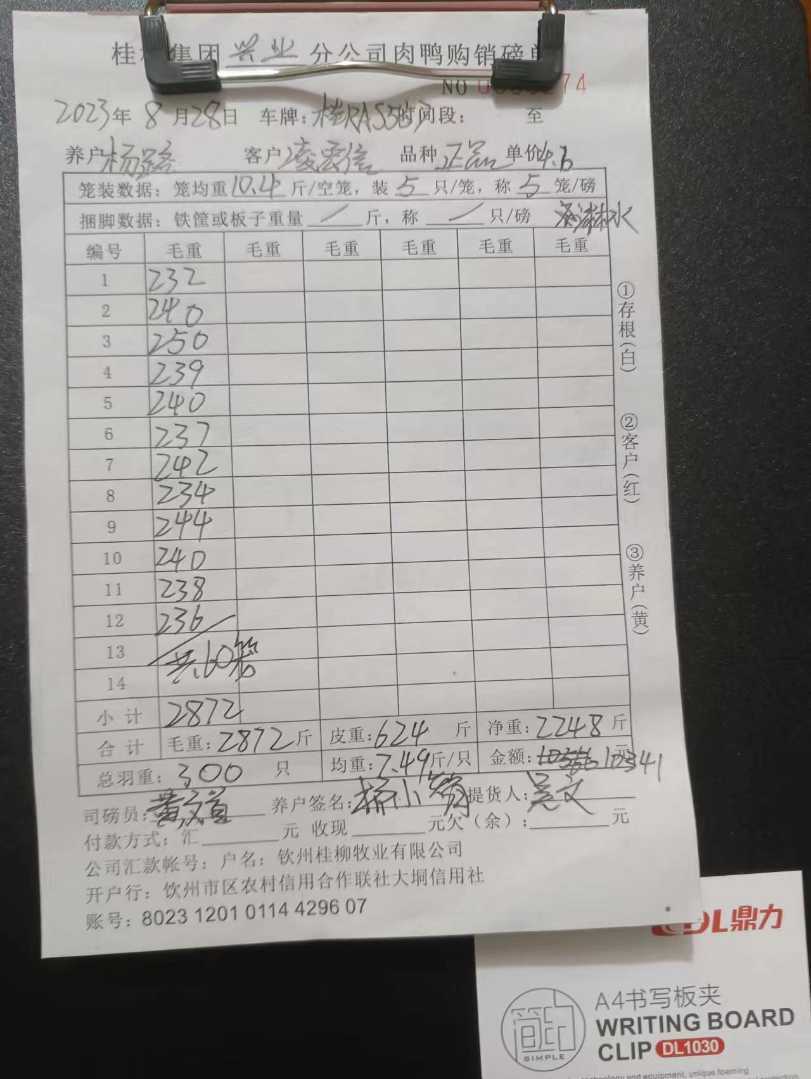 桂柳集团 兴业 分公司肉鸭购销磅单
NO 74
2023年 8 月28日 车牌: 时间段: 至
养户 杨 客户 凌 信 品种 正品 单价4.6
笼装数据: 笼均重10.4斤/空笼, 装 5 只/笼, 称 5 笼/磅
捆脚数据: 铁筐或板子重量 / 斤, 称 / 只/磅 淋水
编号 毛重 毛重 毛重 毛重 毛重 毛重
1 232
2 240
3 250
4 239
5 240
6 237
7 242
8 234
9 244
10 240
11 238
12 236
13 共60笼
14
小 计 2872
合 计 毛重: 2872斤 皮重: 624 斤 净重: 2248斤
总羽重: 300 只 均重: 7.49斤/只 金额: 10341 元
司磅员: 养户签名: 杨小 提货人:
付款方式: 汇 元 收现 元欠(余): 元
公司汇款帐号: 户名: 钦州桂柳牧业有限公司
开户行: 饮州市区农村信用合作联社大垌信用社
账号: 8023 1201 0114 4296 07
①存根(白)
②客户(红)
③养户(黄)
DL鼎力
简 SIMPLE
A4书写板夹
WRITING BOARD
CLIP DL1030
technology and equipment, unique foaming